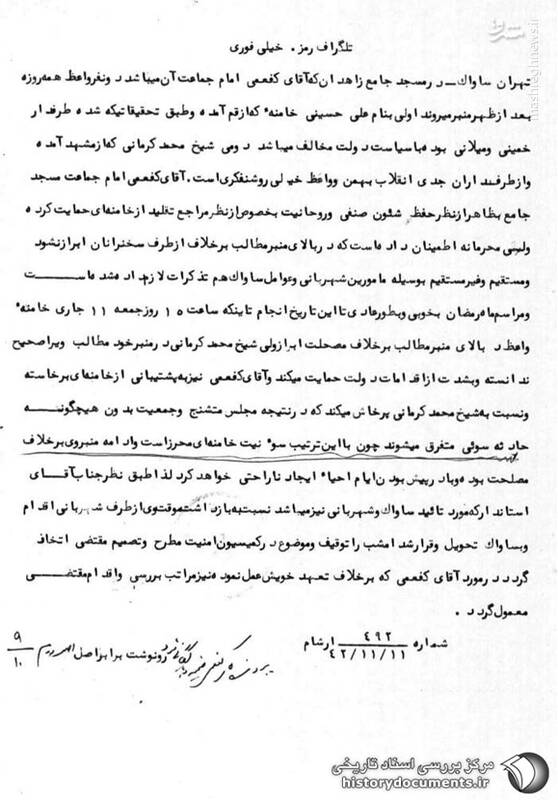 تلگراف رمز . خیلی فوری
تهران ساواک ـ در مسجد جامع زاهدان که آقای کفعمی امام جماعت آن میباشد دونفر واعظ همه روزه
بعد از ظهر منبر میروند اولی بنام علی حسینی خامنهٔ که از قم آمده وطبق تحقیقاتیکه شده طرفدار
خمینی ومیلانی بوده با سیاست دولت مخالف میباشد دومی شیخ محمد کرمانی که از مشهد آمده
واز طرفداران جدی انقلاب بهمن وواعظ خیلی روشنفکری است . آقای کفعمی امام جماعت مسجد
جامع بظاهر از نظر حفظ شئون صنفی وروحانیت بخصوص از نظر مراجع تقلید از خامنه‌ای حمایت کرده
ولی محرمانه اطمینان داده است که در بالای منبر مطالب برخلاف از طرف سخنرانان ابراز نشود
ومستقیم وغیر مستقیم بوسیله مامورین شهربانی وعوامل ساواک هم تذکرات لازم داده شده است
ومراسم ماه رمضان بخوبی وبطور عادی تا این تاریخ انجام تا اینکه ساعت ۱۵ روز جمعه ۱۱ جاری خامنهٔ
واعظ در بالای منبر مطالب برخلاف مصلحت ابراز ولی شیخ محمد کرمانی در منبر خود مطالب ویرا صحیح
ندانسته وبشدت از اقدامات دولت حمایت میکند وآقای کفعمی نیز به پشتیبانی از خامنه‌ای برخاسته
ونسبت به شیخ محمد کرمانی پرخاش میکند که در نتیجه مجلس متشنج وجمعیت بدون هیچگونه
حادثه سوئی متفرق میشوند چون با این ترتیب سوء نیت خامنه‌ای محرز است وادامه منبر وی برخلاف
مصلحت بوده وبا در پیش بودن ایام احیاء ایجاد ناراحتی خواهد کرد لذا طبق نظر جناب آقای
استاندار که مورد تائید ساواک وشهربانی نیز میباشد نسبت به بازداشت موقت وی از طرف شهربانی اقدام
وبساواک تحویل وقرار شد امشب را توقیف وموضوع در کمیسیون امنیت مطرح وتصمیم مقتضی اتخاذ
گردد در مورد آقای کفعمی که برخلاف تعهد خویش عمل نموده نیز مراتب بررسی واقدام مقتضی
معمول گردد .
شماره ۴۹۲ ارشام
۴۲/۱۱/۱۱
رونوشت برابر اصل است
۹
۱۰
مرکز بررسی اسناد تاریخی
historydocuments.ir
mashreghnews.ir